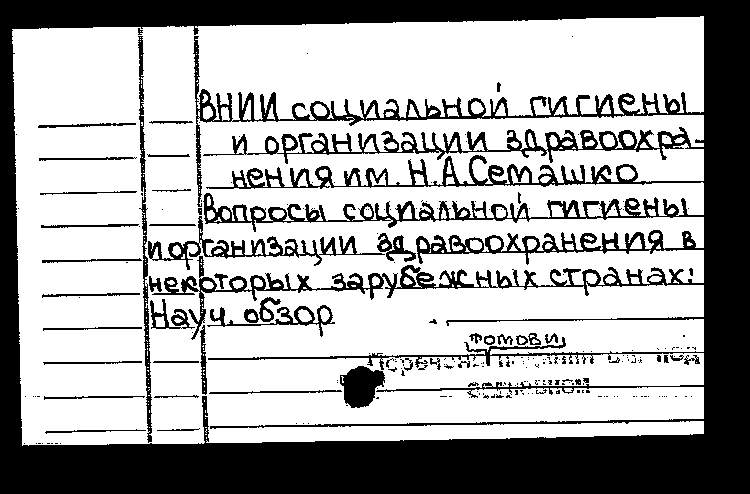 ВНИИ социальной гигиены
и организации здравоохра-
нения им. Н.А.Семашко
Вопросы социальной гигиены
и организации здравоохранения в
некоторых зарубежных странах:
Науч. обзор
томови
под